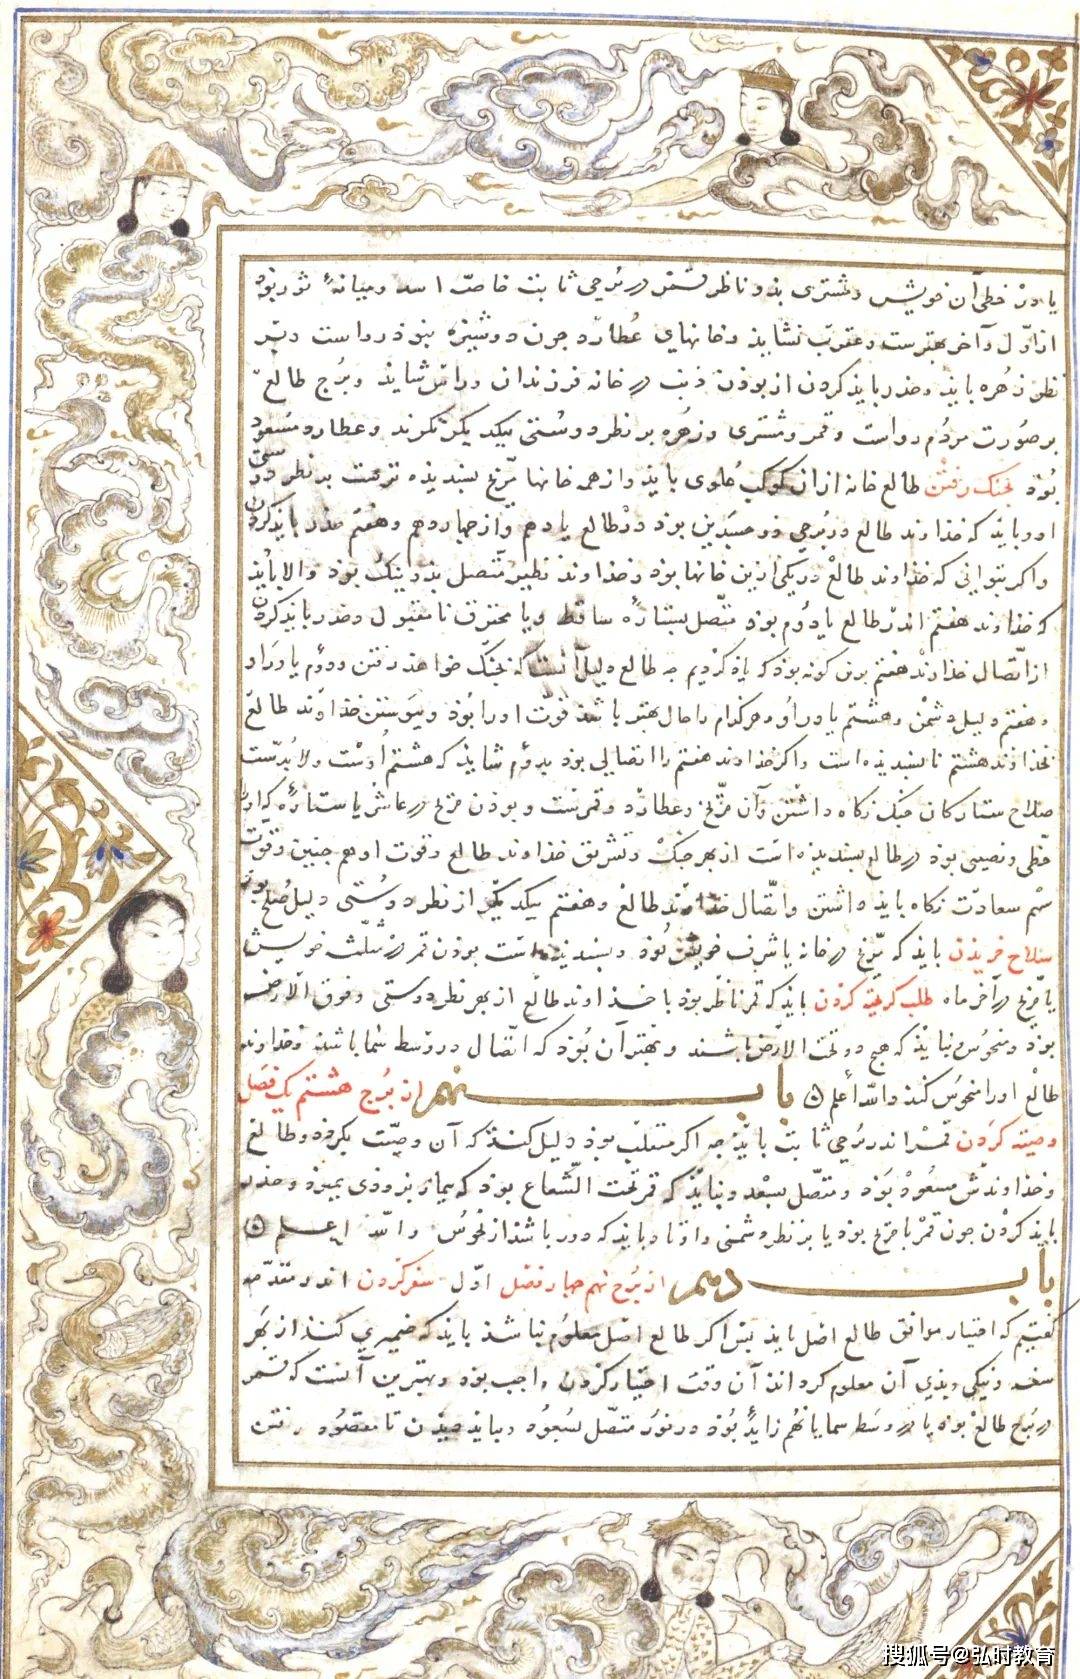 یا در خطی آن خویش و مشتری بذو ناظر قمر در برجی ثابت خاصّت اسد و میانهٔ ثور بوذ
از اوّل و آخر بهترست و عقرب نشایذ و خانهای عُطارد چون دوشیزه بنوذ رواست و بتر
نظر زهره بایذ و حذر بایذ کردن از بوذن ذنب در خانه فرزندان و رامش شایذ و برج طالع
بر صُورت مردُم رواست و قمر و مشتری و زهُره بر نظر دوستی بیکدیگر نکرند و عطارد مسعود
بوَذ بجنک رفتن طالع خانه از ان کوکب عُلوی بایذ و از همه خانها مرّیخ بسندیذه ترست بر نظر دوستی
او و بایذ که خذاوند طالع و برجی ذوجسدین بوذ در طالع یا دهم و از چهاردهم و هفتم حذر بایذ کردن
و اکر بتوانی که خذاوند طالع در یکی ازین خانها بوذ و خذاوند نظیر متّصل بذو نیک بوذ و الا بایذ
که خذاوند هفتم اندر طالع یا دوُم بوذ متّصل بستارهٔ ساقط و یا محترق نامقبول و حذر بایذ کردن
از اتّصال خذاوند هفتم بدن کونه بوذ که یاذ کردیم چه طالع دلیل آنست که بجنک خواهذ رفتن و دوُم یاور او
و هفتم دلیل دشمن و هشتم یاور او و هر کدام را حال بهتر باشذ قوّت او را بُوذ و پیوستن خذاوند طالع
بخذاوند هشتم نابسندیذه است و اکر خذاوند هفتم را اتصالی بوذ بدوُم شایذ که هشتم اُوست و لا بُدّست
صلاح ستارکان جنک نکاه داشتن و آن مرّیخ و عطارد و قمرست و بوذن مریخ در عاشر یا ستارهٔ که او را
حظّی و نصیبی بوذ در طالع بسندیذه است از بهر جنک و تشریق خذاوند طالع و قوت او هم چنین و قوت
سهم سعادت نکاه بایذ داشتن و اتّصال خذاوند طالع و هفتم بیکدیکر از نظر دوُستی دلیل صُلح بوذ
سلاح خریذن بایذ که مرّیخ در خانه یا شرف خویش بُوذ و بسندیذه است بوذن قمر در مثلّثه خویش
یا مرّیخ در آخر ماه طلب کریخته کردن بایذ که قمر ناظر بوذ با خذاوند طالع از بهر نظر دوستی و فوق الارض
بوذ و منحوُس و نبایذ که هیچ دو تحت الارض باشند و بهتر آن بُوذ که اتّصال در وسط سما باشذ و خذاوند
طالع او را منحوُس کند واللّه اعلم ۵ بابـ نهم از بُرج هشتم یک فصَل
وصیّه کردن قمر اندر بُرجی ثابت بایذ چه اکر منقلب بوذ دلیل کنذ که آن وصیّت بکردذ و طالع
و خذاوندش مسعُوذ بوَذ و متّصل بسعد و نبایذ که قمر تحت الشّعاع بوذ که بیمار بزودی بمیرذ و حذر
بایذ کردن چون قمر با مریخ بوذ یا بر نظر دشمنی و اوتاد بایذ که دور باشذ از نحوُس واللّه اعلم ۵
بابـ دهم از برج نهم چهار فصَل اوّل سفر کردن اندر مقدّمه
کفتیم که اختیار موافق طالع اصل بایذ بس اکر طالع اصل معلوُم نباشذ بایذ که ضمیری کنذ از بهر
سفر و نیکی و بذی آن معلوم کرداند آن وقت اختیار کردن واجب بوذ و بهترین آنست که قمر
در برج طالع بوذ یا در وسَط سما یا نهُم زایذ بُوذ در نور متّصل بسُعُوذ و بایذ دیذن تا مقصُود رفتن
搜狐号@弘时教育